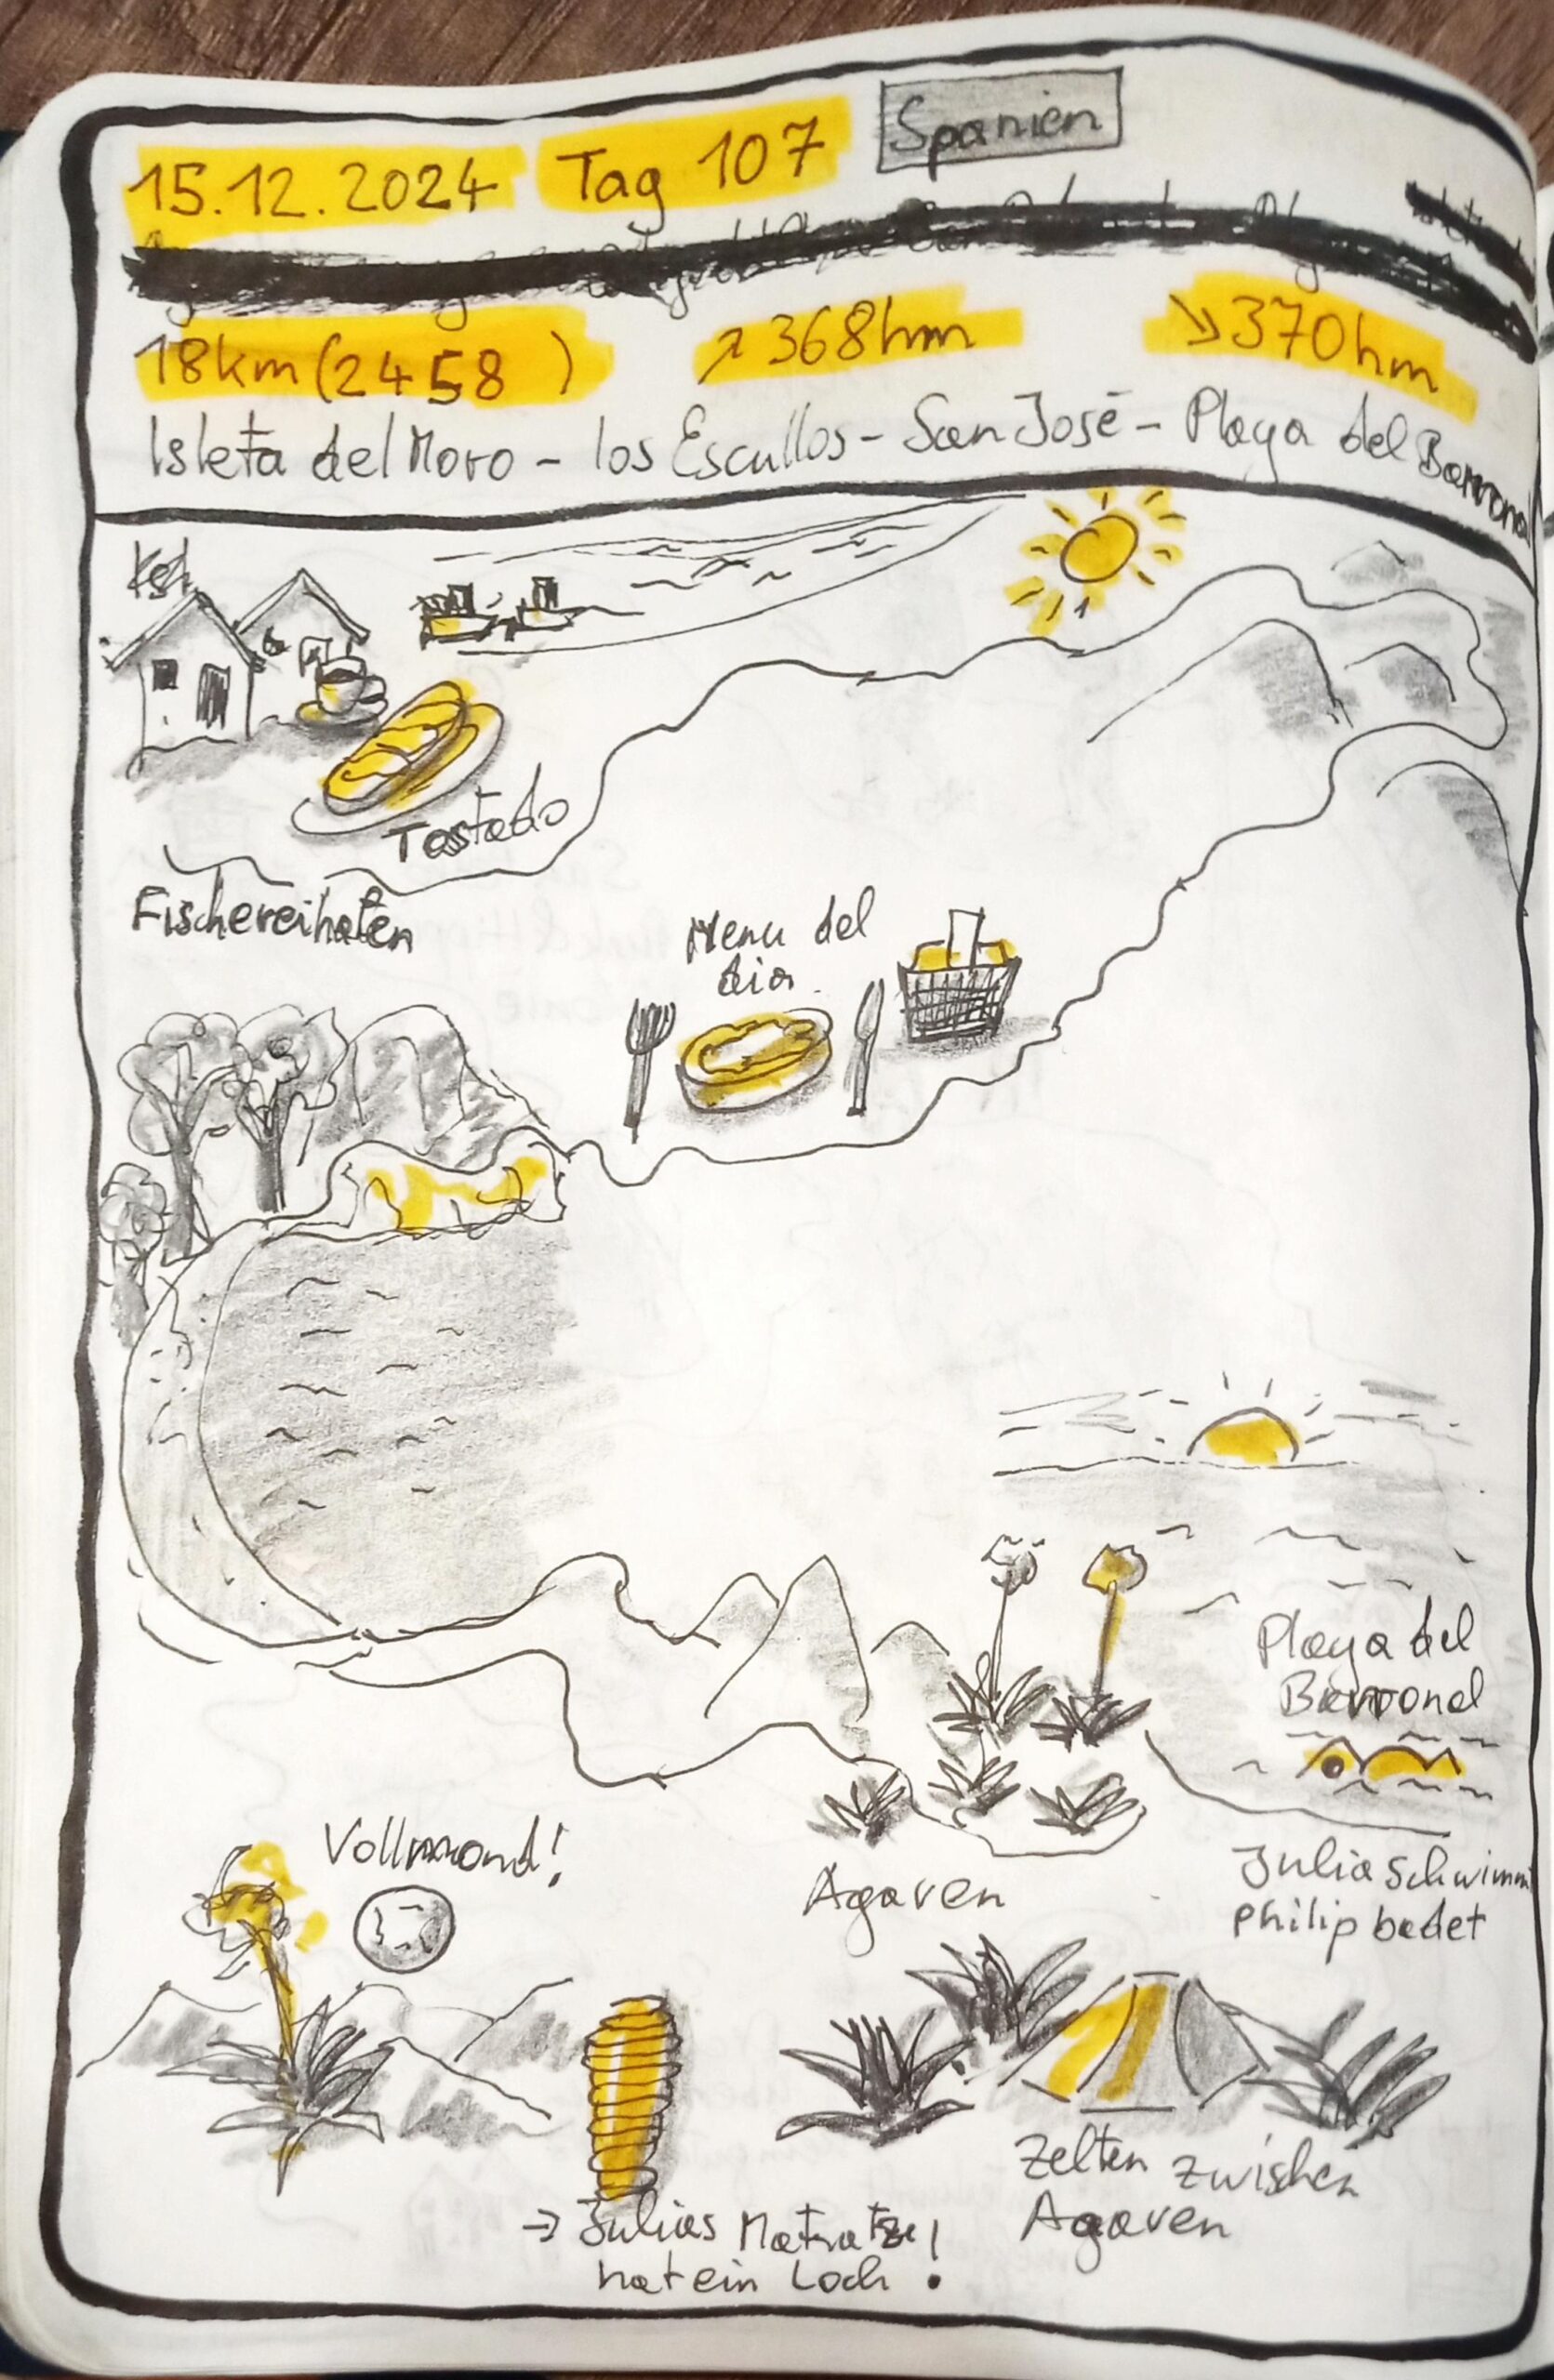 15.12.2024 Tag 107 Spanien
18km (2458 ) ↗368hm ↘370hm
Isleta del Moro - los Escullos - San José - Playa del Barronal
Tostado
Fischereihafen
Menu del
dia
Playa del
Barronal
Julia schwimmt
Philip badet
Agaven
Vollmond!
Zelten zwischen
Agaven
→ Julias Matratze
hat ein Loch !